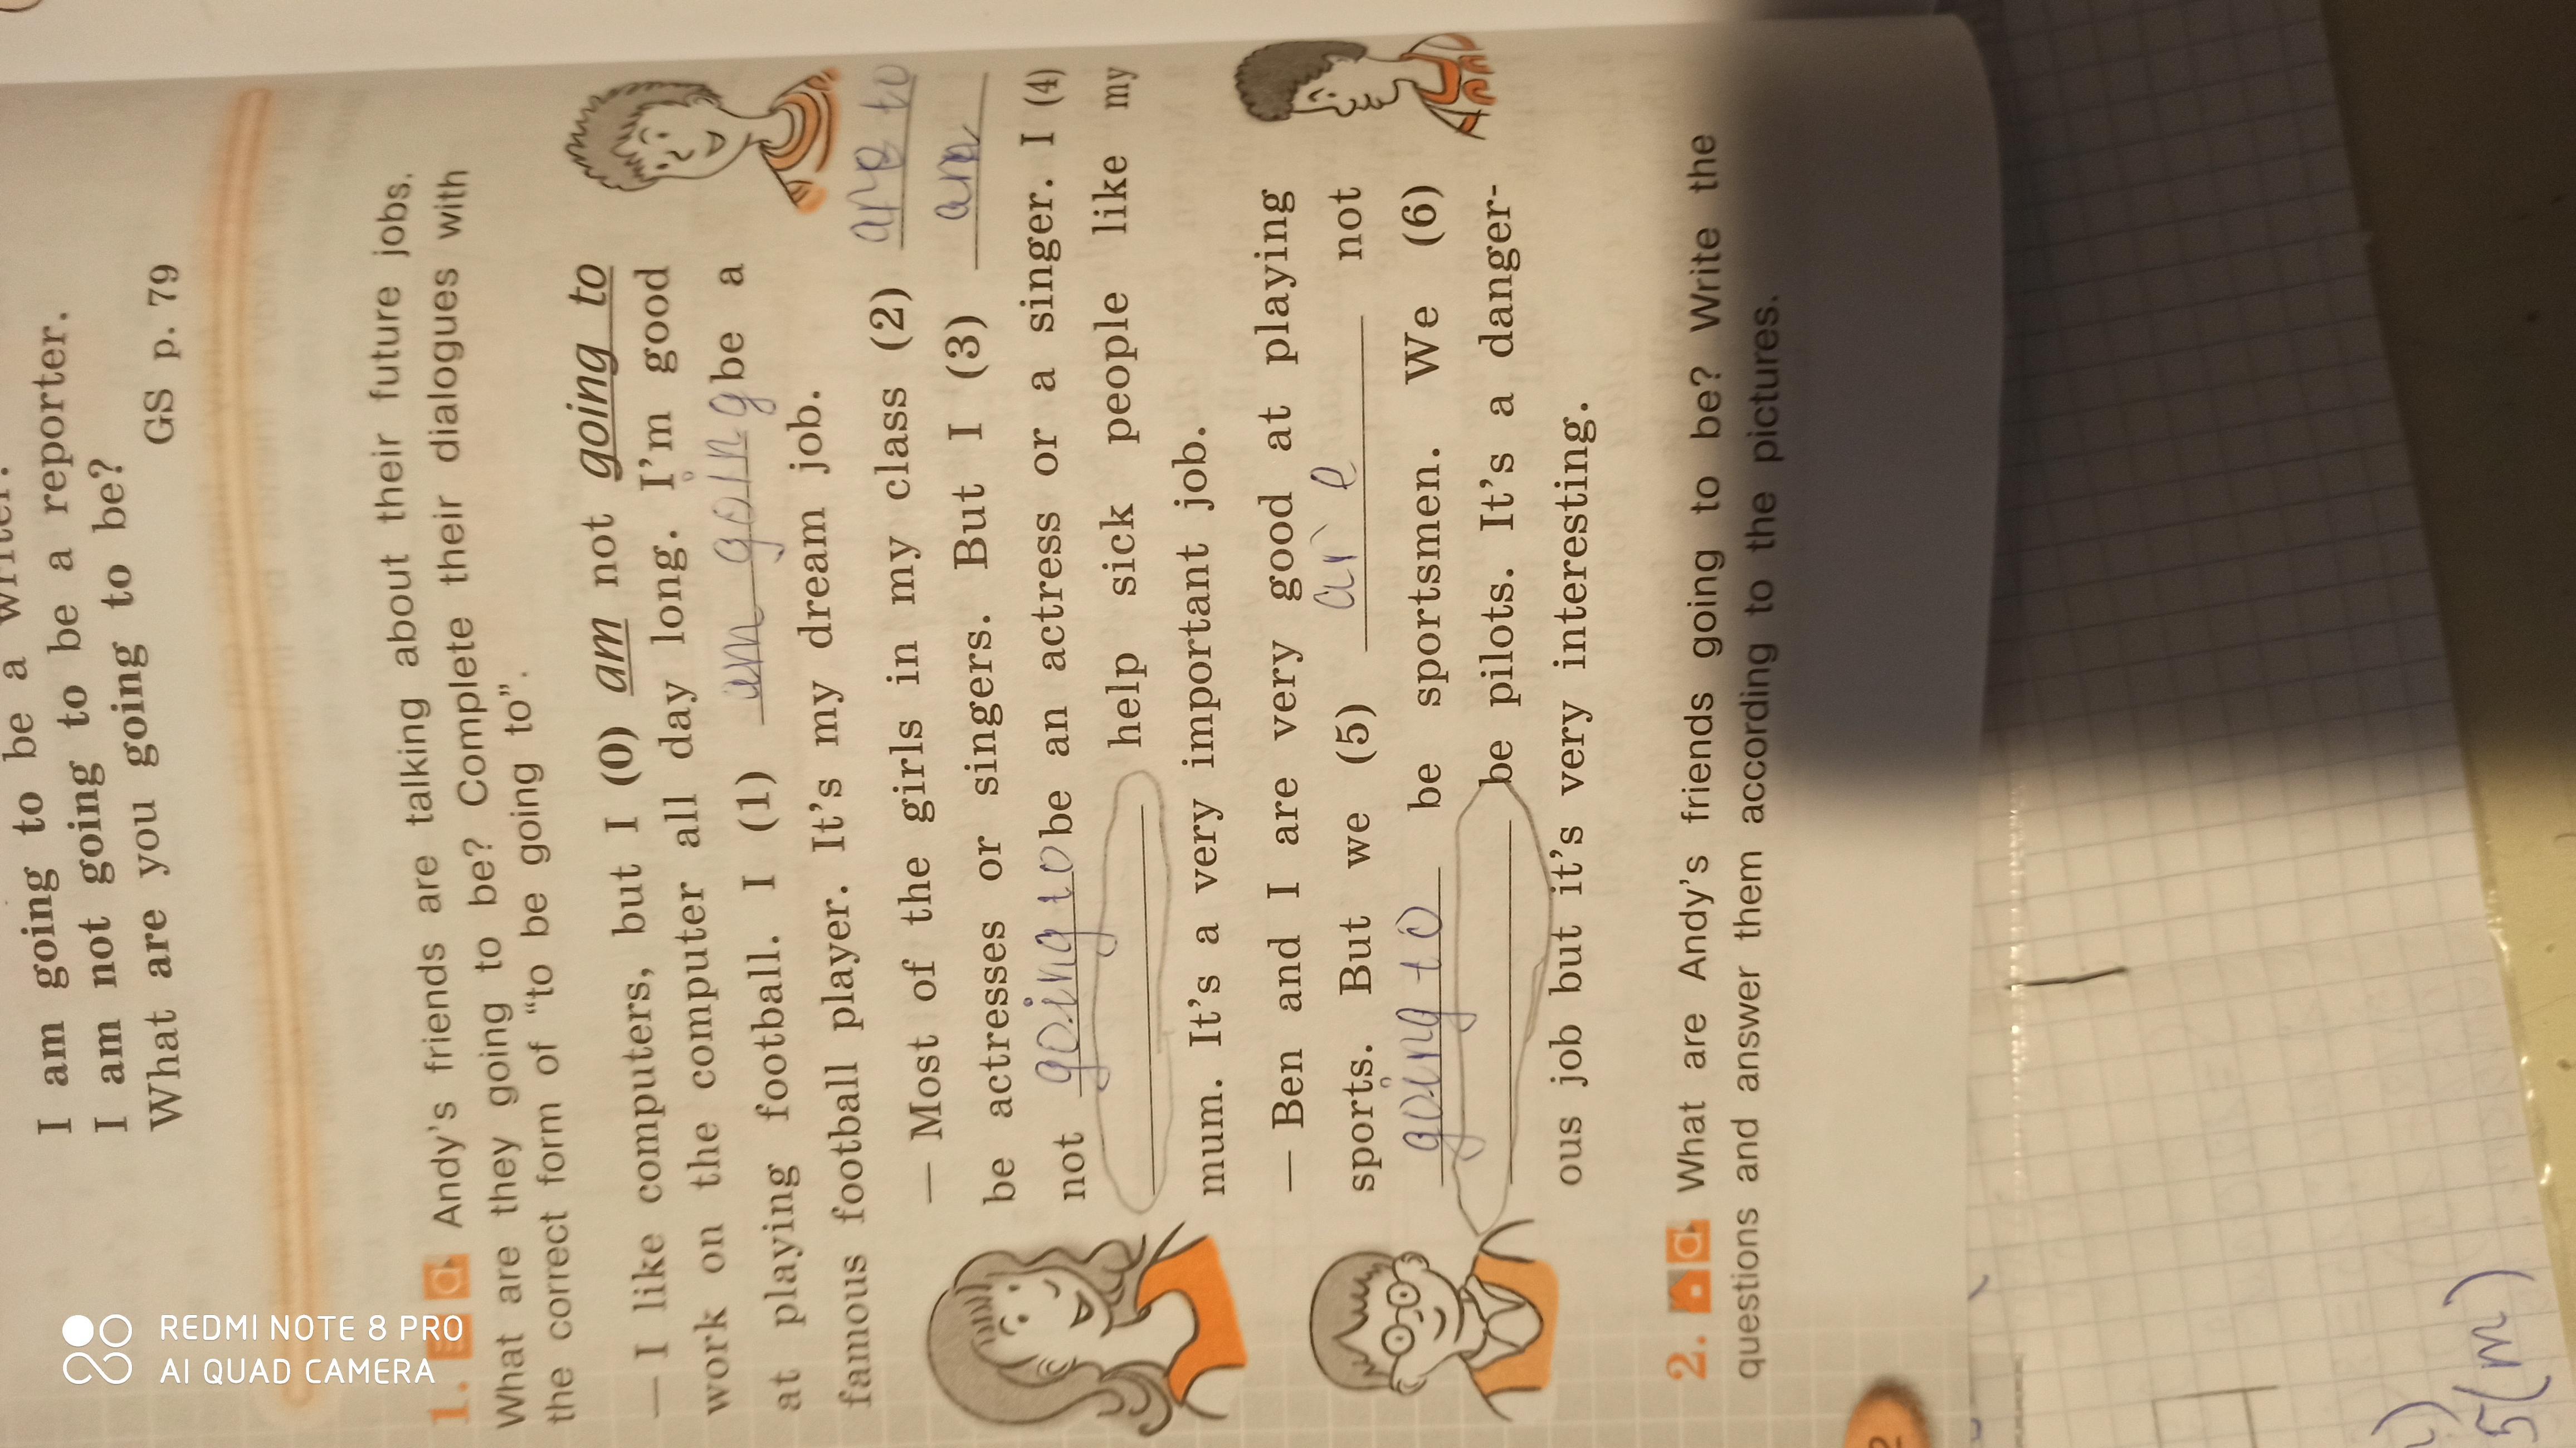 I am going to be a writer.
I am going to be a reporter.
I am not going to be?
What are you going to be?
GS p. 79
1. Andy's friends are talking about their future jobs.
What are they going to be? Complete their dialogues with
the correct form of "to be going to".
— I like computers, but I (0) am not going to
work on the computer all day long. I'm good
at playing football. I (1) em going be a
famous football player. It's my dream job.
— Most of the girls in my class (2) are to
be actresses or singers. But I (3) am
not going to be an actress or a singer. I (4)
help sick people like my
mum. It's a very important job.
— Ben and I are very good at playing
sports. But we (5) are not
going to be sportsmen. We (6)
be pilots. It's a danger-
ous job but it's very interesting.
2. a What are Andy's friends going to be? Write the
questions and answer them according to the pictures.
2
5(m)
REDMI NOTE 8 PRO
AI QUAD CAMERA